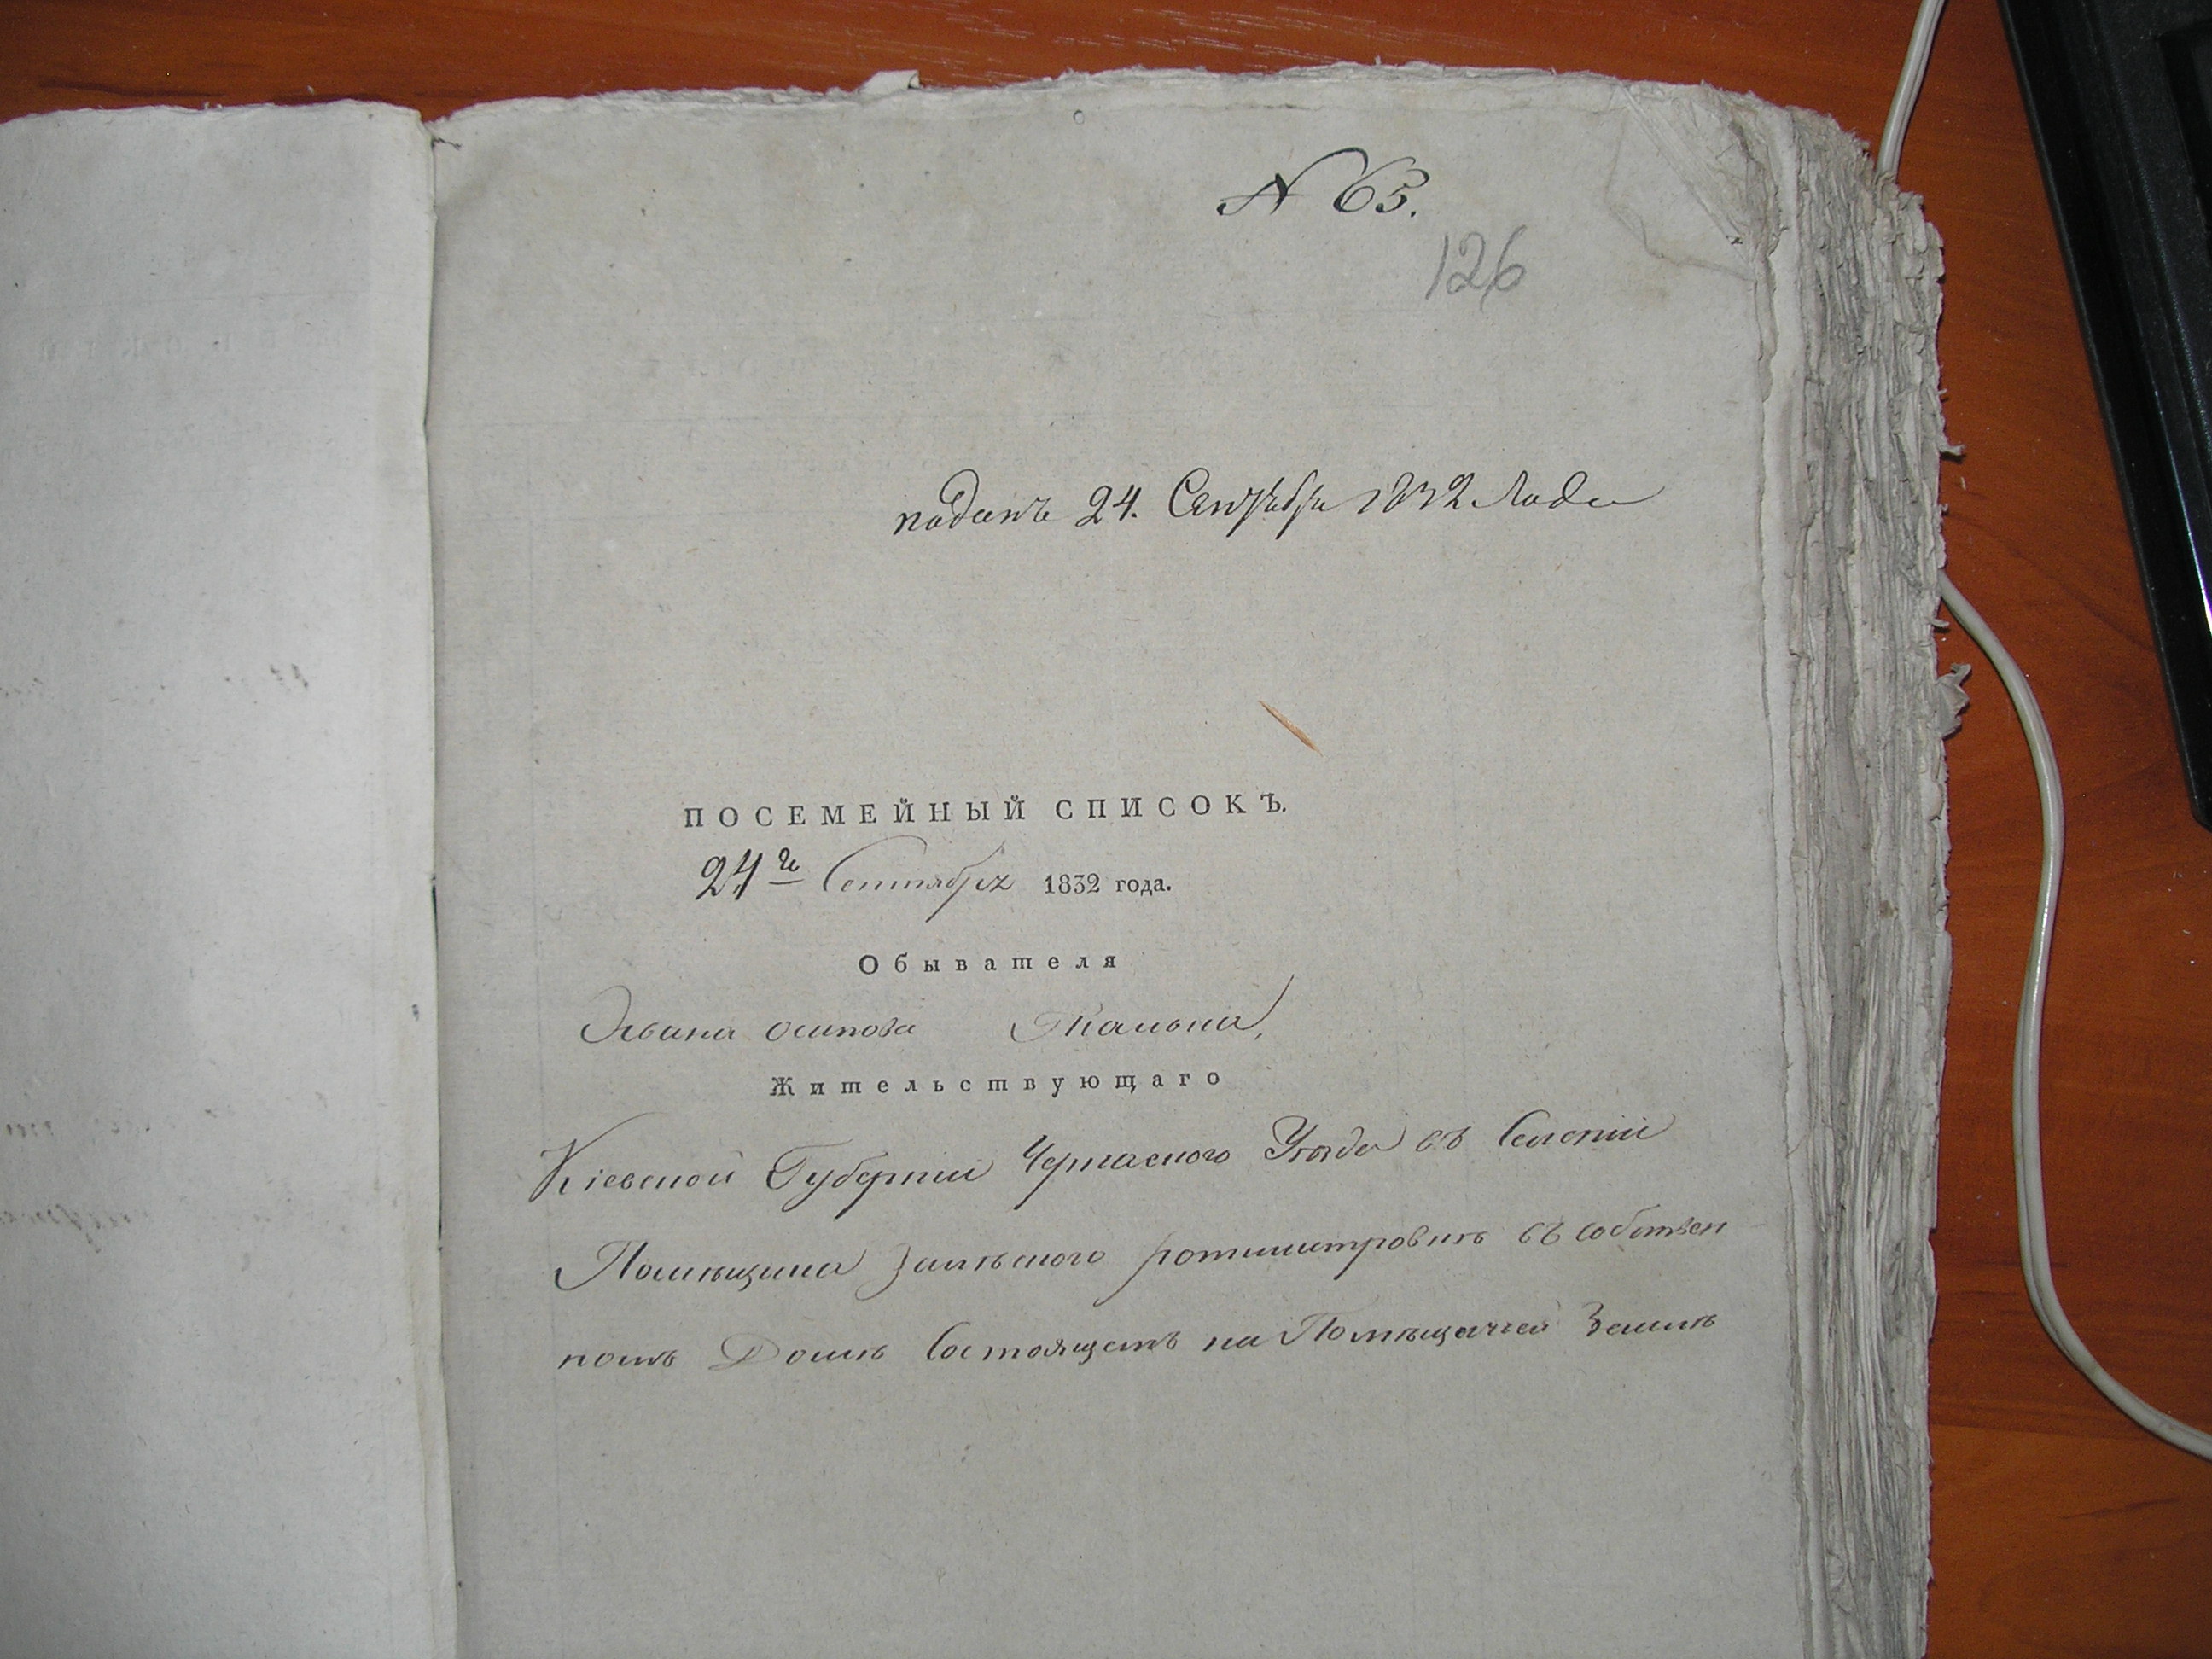 N 65.
126
поданъ 24. Сентября 1832 Года
ПОСЕМЕЙНЫЙ СПИСОКЪ.
24го Сентября 1832 года.
Обывателя
Ивана Осипова
Жительствующаго
Кіевской Губерніи Черкаского Уѣзда въ Селеніи
Помѣщика ротмистровкѣ въ собствен
номъ Домѣ Состоящемъ на Помѣщичьей Землѣ